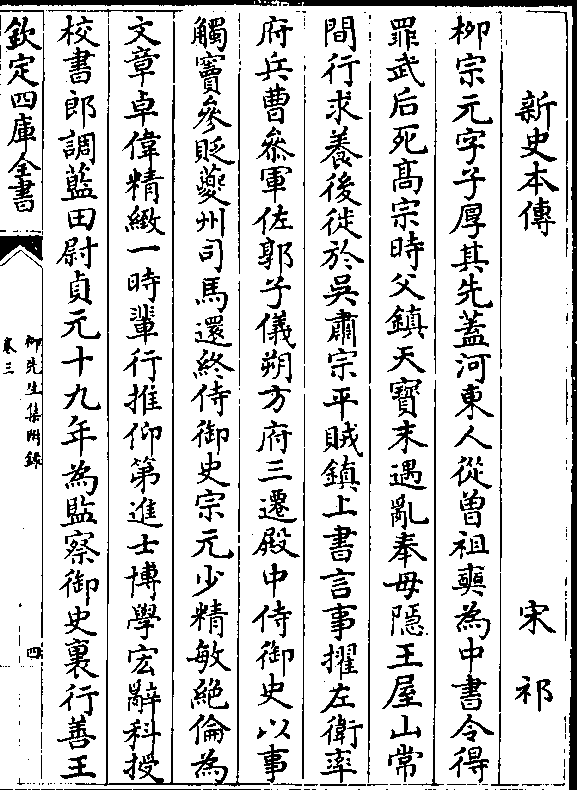 新史本傳 宋祁
柳宗元字子厚其先蓋河東人從曾祖奭為中書令得
罪武后死髙宗時父鎮天寶末遇亂奉母隱王屋山常
間行求養後徙於吳肅宗平賊鎮上書言事擢左衛率
府兵曹叅軍佐郭子儀朔方府三遷殿中侍御史以事
觸竇參貶夔州司馬還終侍御史宗元少精敏絶倫為
文章卓偉精緻一時輩行推仰第進士博學宏辭科授
校書郎調藍田尉貞元十九年為監察御史裏行善王
欽定四庫全書
柳先生集附錄
卷三
四